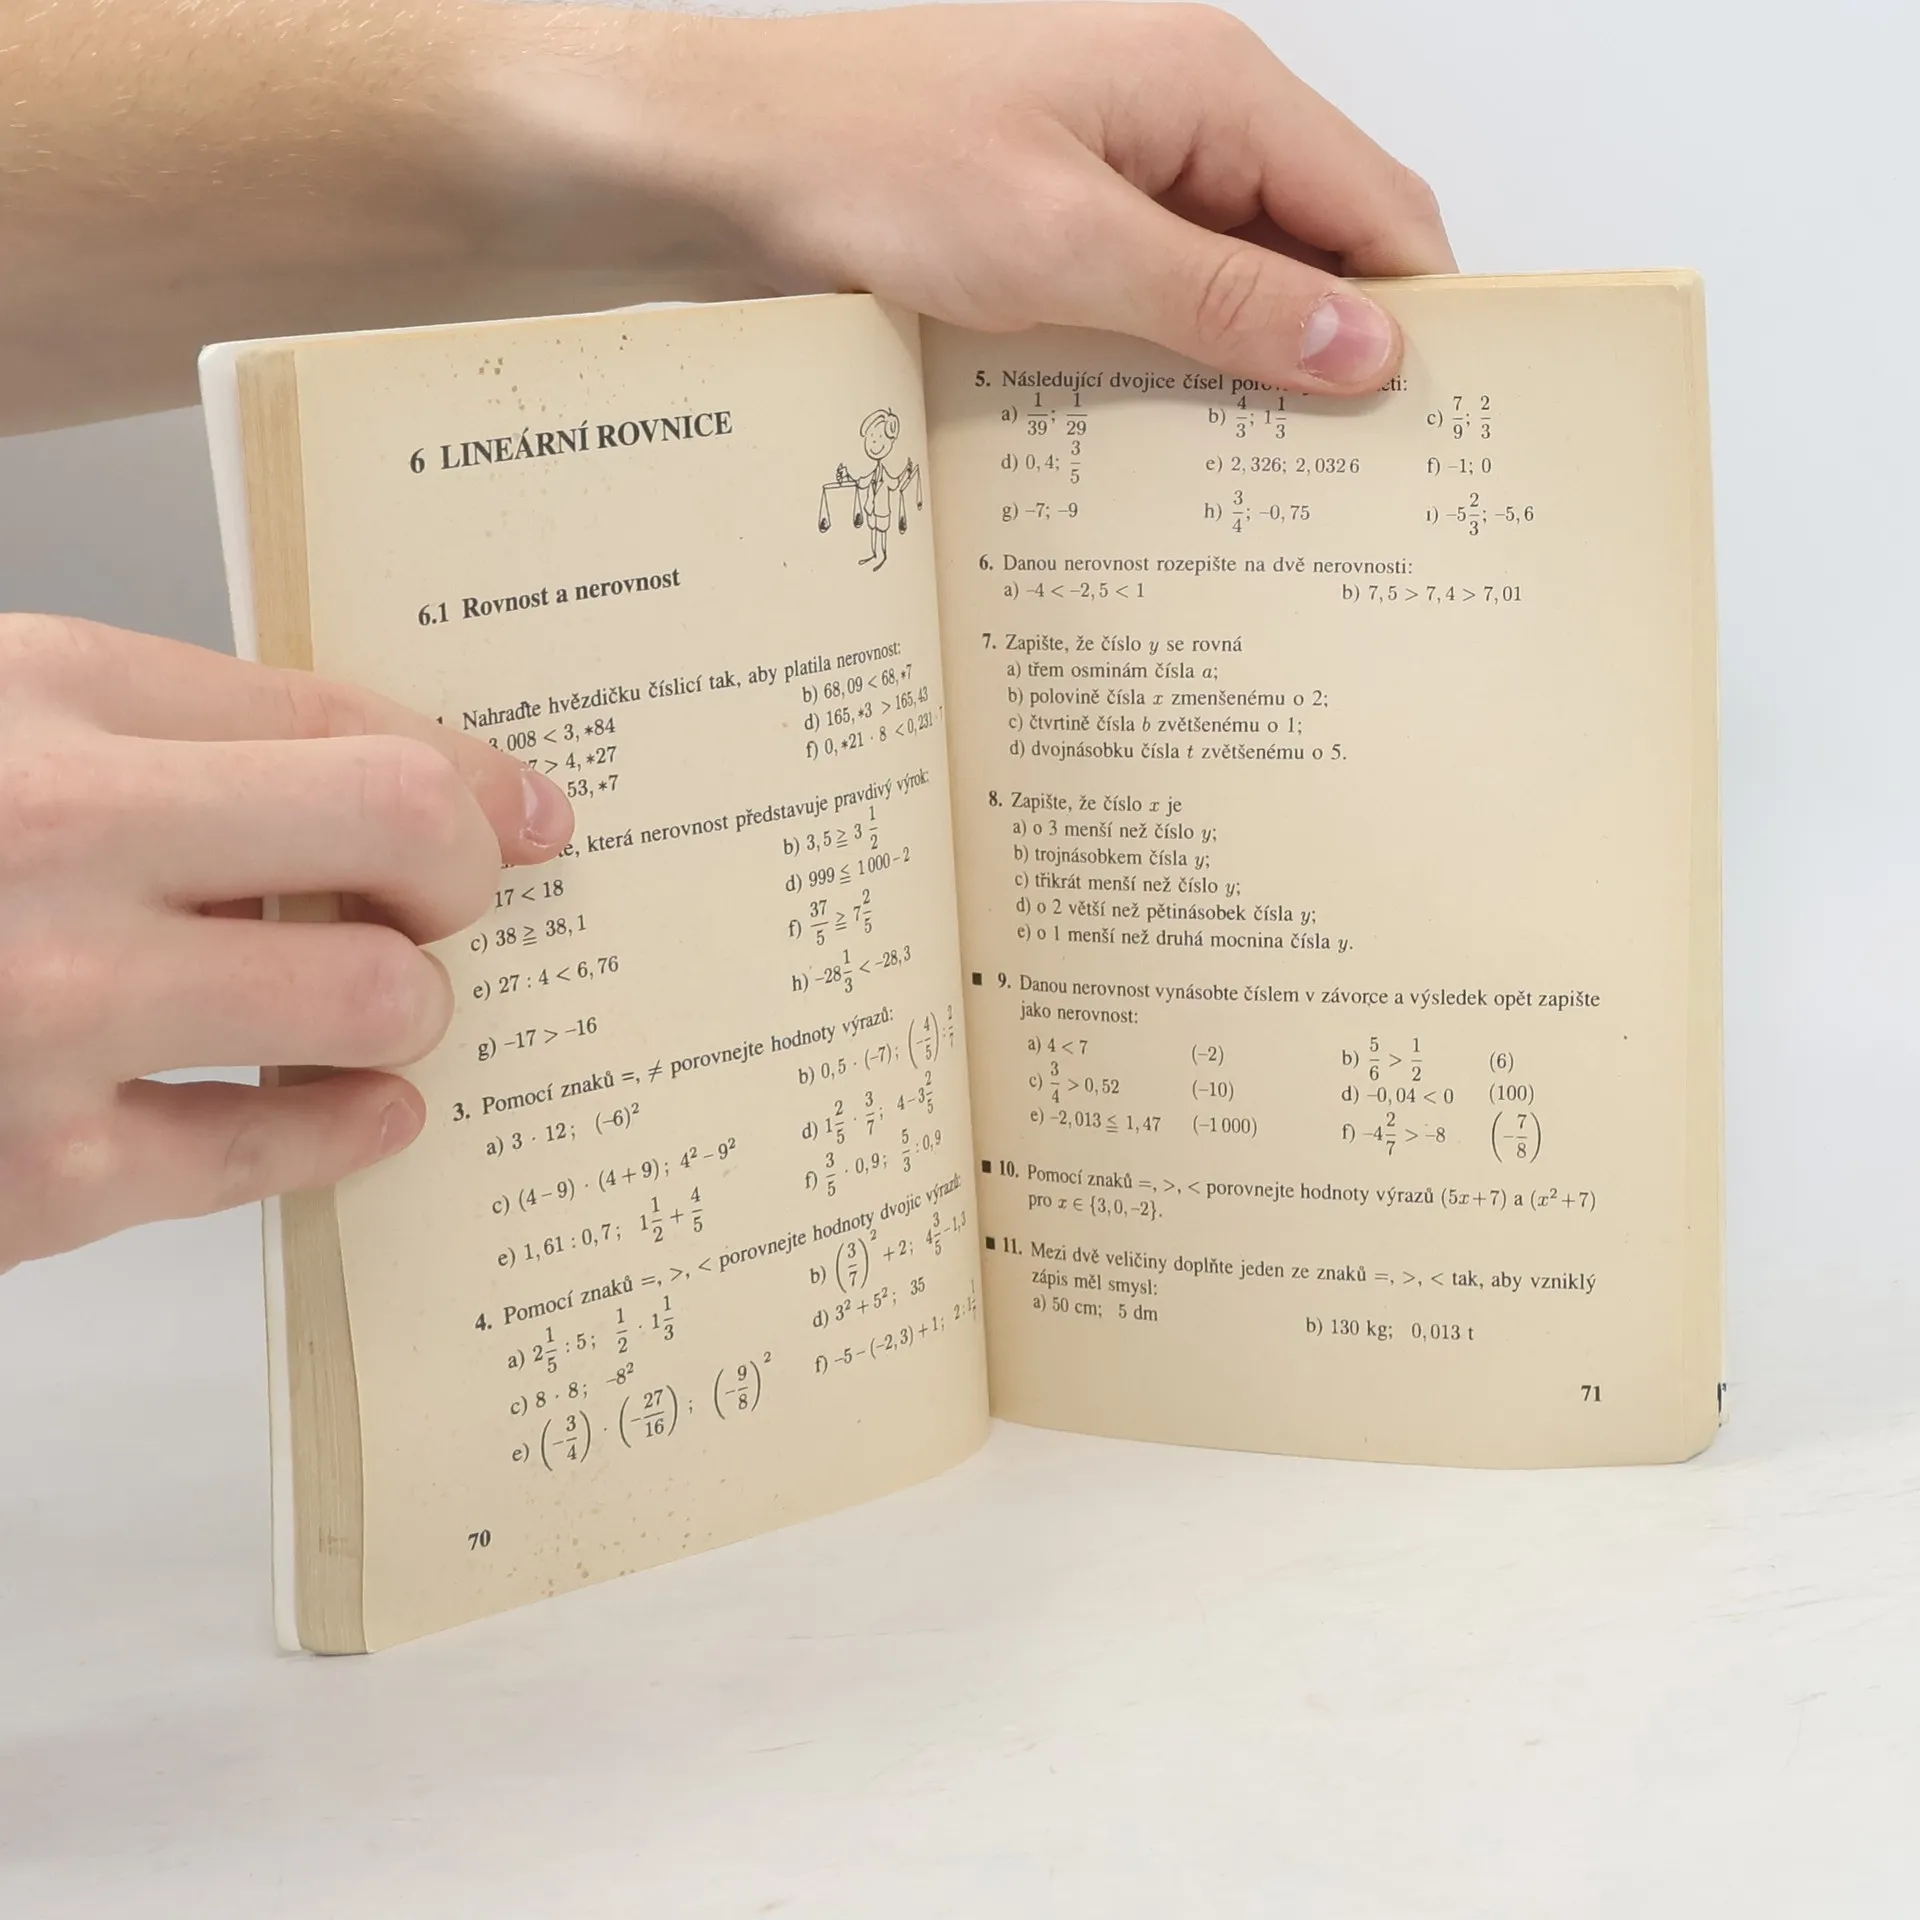 6 LINEÁRNÍ ROVNICE
6.1 Rovnost a nerovnost
Nahraďte hvězdičku číslicí tak, aby platila nerovnost:
3,008 < 3,*84 b) 68,09 < 68,*7
> 4,*27 d) 165,*3 > 165,43
53,*7 f) 0,*21 · 8 < 0,231 ·
která nerovnost představuje pravdivý výrok:
17 < 18 b) 3,5 ≧ 3 1/2
c) 38 ≧ 38,1 d) 999 ≦ 1000 – 2
e) 27 : 4 < 6,76 f) 37/5 ≧ 7 2/5
g) –17 > –16 h) –28 1/3 < –28,3
3. Pomocí znaků =, ≠ porovnejte hodnoty výrazů:
a) 3 · 12; (–6)² b) 0,5 · (–7); (–4/5) : 2/7
c) (4 – 9) · (4 + 9); 4² – 9² d) 1 2/5 · 3/7; 4 – 3 2/5
e) 1,61 : 0,7; 1 1/2 + 4/5 f) 3/5 · 0,9; 5/3 : 0,9
4. Pomocí znaků =, >, < porovnejte hodnoty dvojic výrazů:
a) 2 1/5 : 5; 1/2 · 1 1/3 b) (3/7)² + 2; 4 3/5 – 1,3
c) 8 · 8; –8² d) 3² + 5²; 35
e) (–3/4) · (–27/16); (–9/8)² f) –5 – (–2,3) + 1; 2 :
70
5. Následující dvojice čísel
a) 1/39; 1/29 b) 4/3; 1 1/3 c) 7/9; 2/3
d) 0,4; 3/5 e) 2,326; 2,0326 f) –1; 0
g) –7; –9 h) 3/4; –0,75 i) –5 2/3; –5,6
6. Danou nerovnost rozepište na dvě nerovnosti:
a) –4 < –2,5 < 1 b) 7,5 > 7,4 > 7,01
7. Zapište, že číslo y se rovná
a) třem osminám čísla a;
b) polovině čísla x zmenšenému o 2;
c) čtvrtině čísla b zvětšenému o 1;
d) dvojnásobku čísla t zvětšenému o 5.
8. Zapište, že číslo x je
a) o 3 menší než číslo y;
b) trojnásobkem čísla y;
c) třikrát menší než číslo y;
d) o 2 větší než pětinásobek čísla y;
e) o 1 menší než druhá mocnina čísla y.
■ 9. Danou nerovnost vynásobte číslem v závorce a výsledek opět zapište
jako nerovnost:
a) 4 < 7 (–2) b) 5/6 > 1/2 (6)
c) 3/4 > 0,52 (–10) d) –0,04 < 0 (100)
e) –2,013 ≦ 1,47 (–1000) f) –4 2/7 > –8 (–7/8)
■ 10. Pomocí znaků =, >, < porovnejte hodnoty výrazů (5x+7) a (x²+7)
pro x ∈ {3,0,–2}.
■ 11. Mezi dvě veličiny doplňte jeden ze znaků =, >, < tak, aby vzniklý
zápis měl smysl:
a) 50 cm; 5 dm b) 130 kg; 0,013 t
71